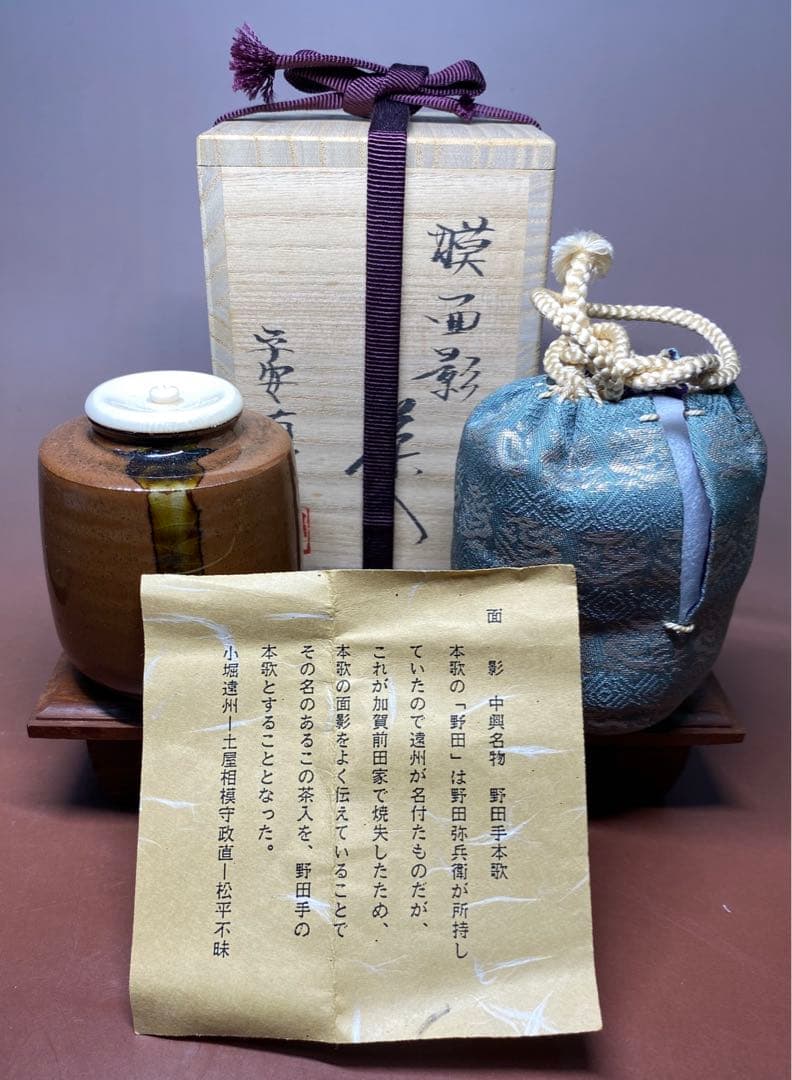 模面影
茶入
平安
面影　中興名物　野田手本歌
本歌の「野田」は野田弥兵衛が所持し
ていたので遠州が名付たものだが、
これが加賀前田家で焼失したため、
本歌の面影をよく伝えていることで
その名のあるこの茶入を、野田手の
本歌とすることとなった。
小堀遠州ー土屋相模守政直ー松平不昧